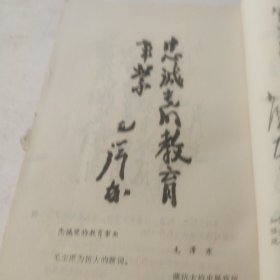 忠诚党的教育
事业
毛泽东
忠诚党的教育事业
毛泽东
毛主席为抗大的题词。